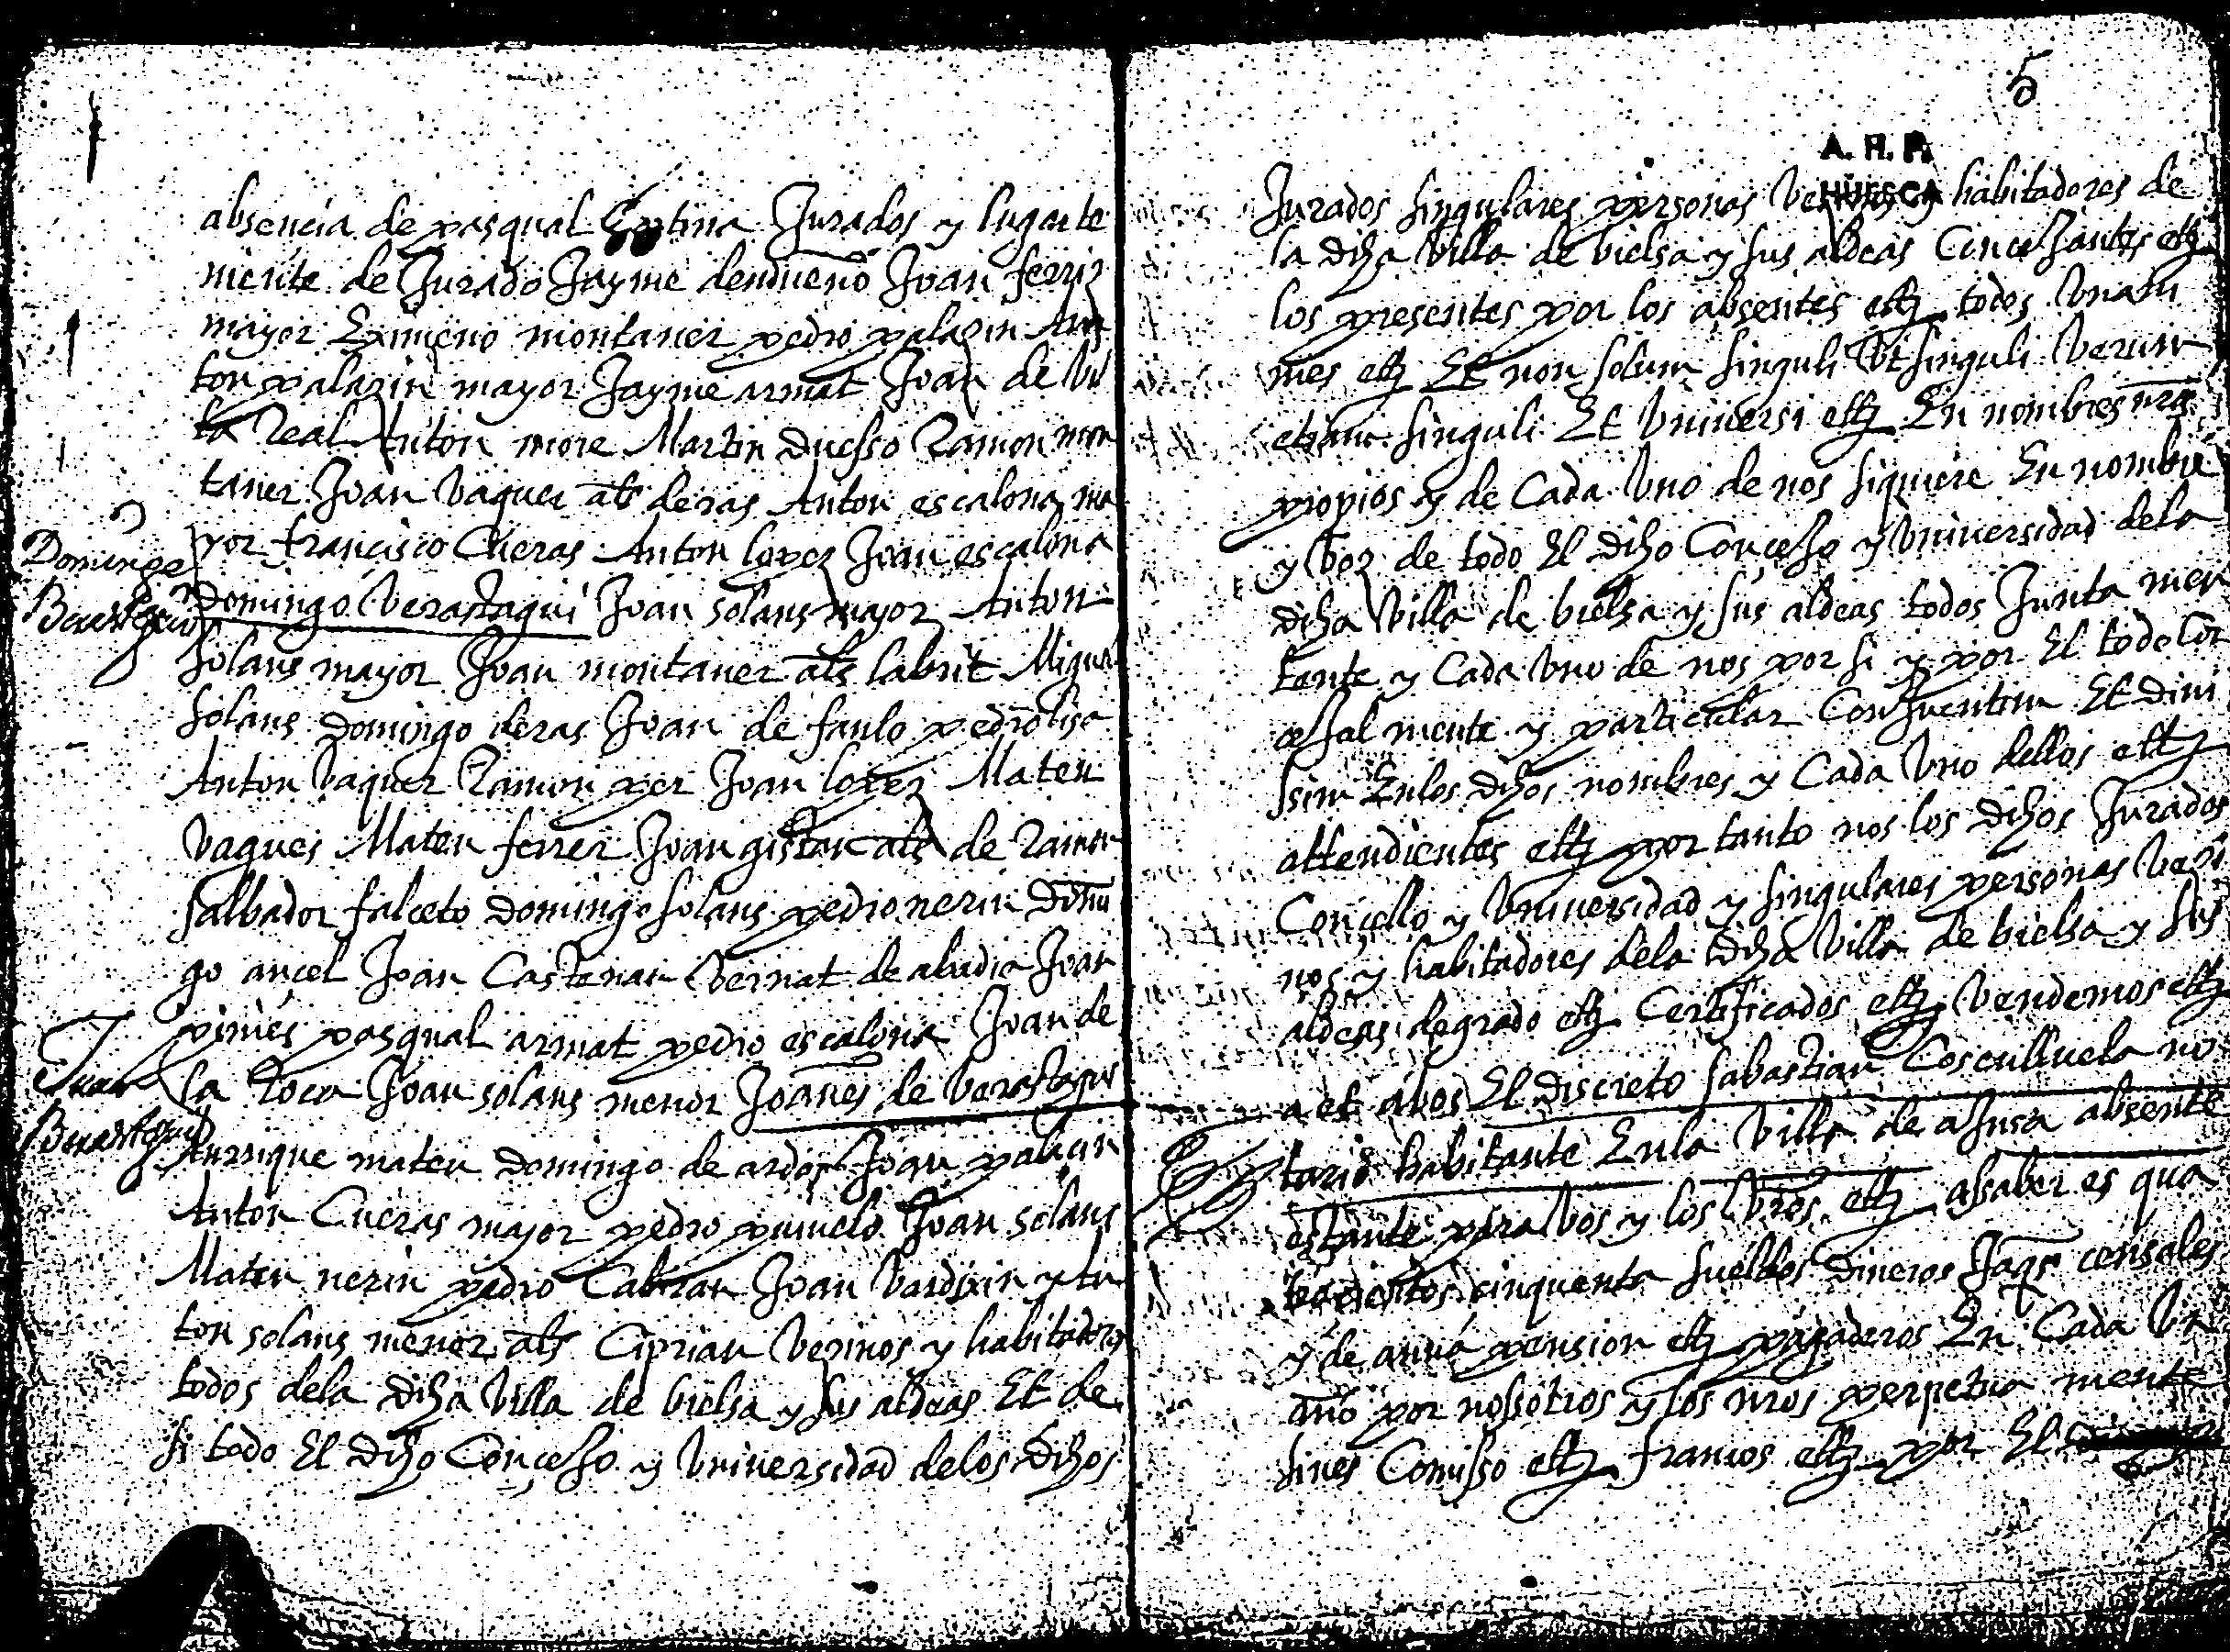 absencia de pasqual Jurados y lugarte
niente de Jurado Jayme dendueño Joan ferrer
mayor Eximeno montaner pedro palazin An
ton palazin mayor Jayme armat Joan de Vi
la Real Anton more Martin Duesso Ramon mon
taner Joan Vaquer als deras Anton escalona ma
yor francisco Cueras Anton lopez Joan escalona
Domingo Verastegui Joan solans mayor Anton
Solans mayor Joan montaner als labrit Miguel
Solans Domingo deras Joan de fanlo pedro lisa
Anton Vaquer Ramon per Joan lopez Mateu
Vaquer Mateu ferrer Joan gistan als de Ramon
salbador falceto Domingo solans pedro nerin Domi
go ancel Joan Castenan Vernat de abadia Joan
pinies pasqual armat pedro escalona Joan de
la Roca Joan solans menor Joanes de Verastegui
Anrrique mateu Domingo de Joan
Anton Cueras mayor pedro punuelo Joan solans
Mateu nerin pedro Cabran Joan y An
ton solans menor als Ciprian Vezinos y habitadores
todos dela dicha Villa de bielsa y sus aldeas Et de
si todo El dicho Concejo y Vniversidad delos dichos
Domingo
Berastegui
Juan
Berastegui
5
A. H. P.
HUESCA
Jurados singulares personas Vezinos y habitadores de
la dicha Villa de bielsa y sus aldeas Concejantes etc
los presentes por los absentes etc todos Vnani
mes etc Et non solum singuli Vt singuli Verum
etiam singuli Et Vniversi etc En nombres nros
propios y de Cada Vno de nos siquiere En nombre
y Voz de todo El dicho Concejo y Vniversidad dela
dicha Villa de bielsa y sus aldeas todos Junta men
tente y Cada Vno de nos por si y por El todo Con
cejal mente y particular Conjuentim Et divi
sim Enlos dichos nombres y Cada Vno dellos etc
attendientes etc por tanto nos los dichos Jurados
Concello y Vniversidad y singulares personas Vezi
nos y habitadores dela dicha Villa de bielsa y sus
aldeas degrado etc Certificados etc Vendemos etc
a et a vos El discreto sabastian Cosculluela no
tario habitante Enla Villa de aJnsa absente
estante para Vos y los Vros etc assaber es qua
trocientos cinquenta sueldos dineros Jaqs censales
y de annua pension etc pagaderos En Cada Vn
año por nosotros y los nros perpetua mente
sines Comisso etc francos etc por El